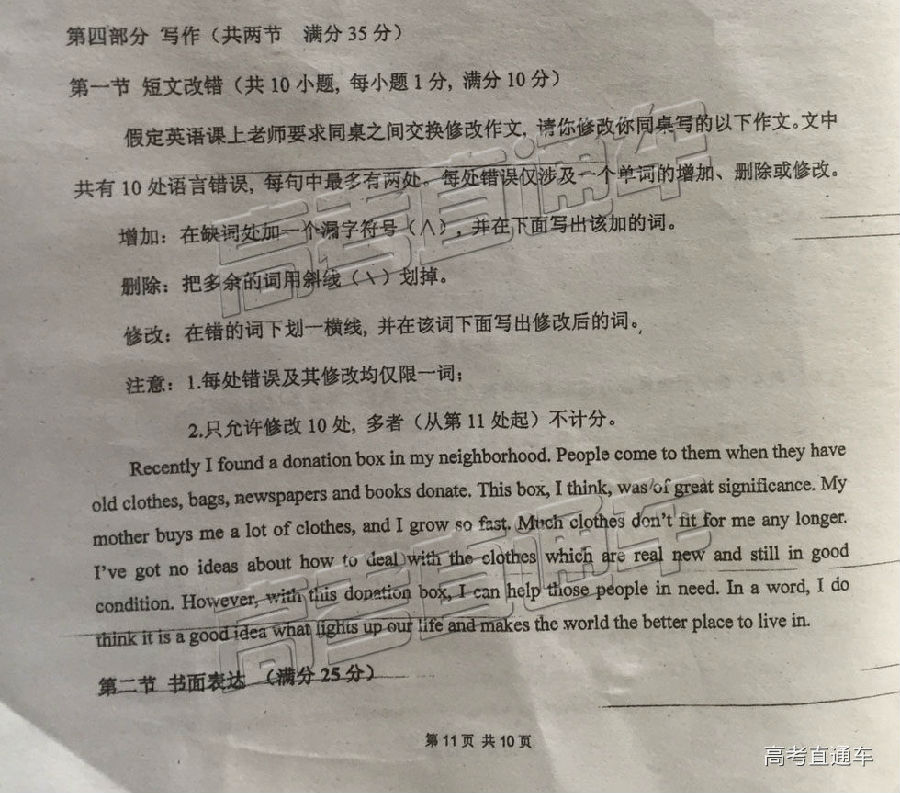 第四部分 写作（共两节 满分 35 分）
第一节 短文改错（共 10 小题, 每小题 1 分, 满分 10 分）
假定英语课上老师要求同桌之间交换修改作文, 请你修改你同桌写的以下作文。文中
共有 10 处语言错误, 每句中最多有两处。每处错误仅涉及一个单词的增加、删除或修改。
增加：在缺词处加一个漏字符号（∧）, 并在下面写出该加的词。
删除：把多余的词用斜线（\）划掉。
修改：在错的词下划一横线, 并在该词下面写出修改后的词。
注意：1.每处错误及其修改均仅限一词；
2.只允许修改 10 处, 多者（从第 11 处起）不计分。
Recently I found a donation box in my neighborhood. People come to them when they have
old clothes, bags, newspapers and books donate. This box, I think, was of great significance. My
mother buys me a lot of clothes, and I grow so fast. Much clothes don't fit for me any longer.
I've got no ideas about how to deal with the clothes which are real new and still in good
condition. However, with this donation box, I can help those people in need. In a word, I do
think it is a good idea what lights up our life and makes the world the better place to live in.
第二节 书面表达 （满分 25 分）
第 11 页 共 10 页
高考直通车
高考直通车
高考直通车